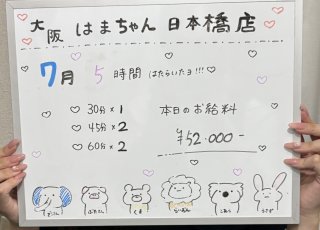 大阪 はまちゃん 日本橋店
7月 5時間 はたらいたヨ!!!
30分×1
45分×2
60分×2
本日のお給料
¥52.000-
ぞうさん ぶたさん くま らいおん こあら うさぎ